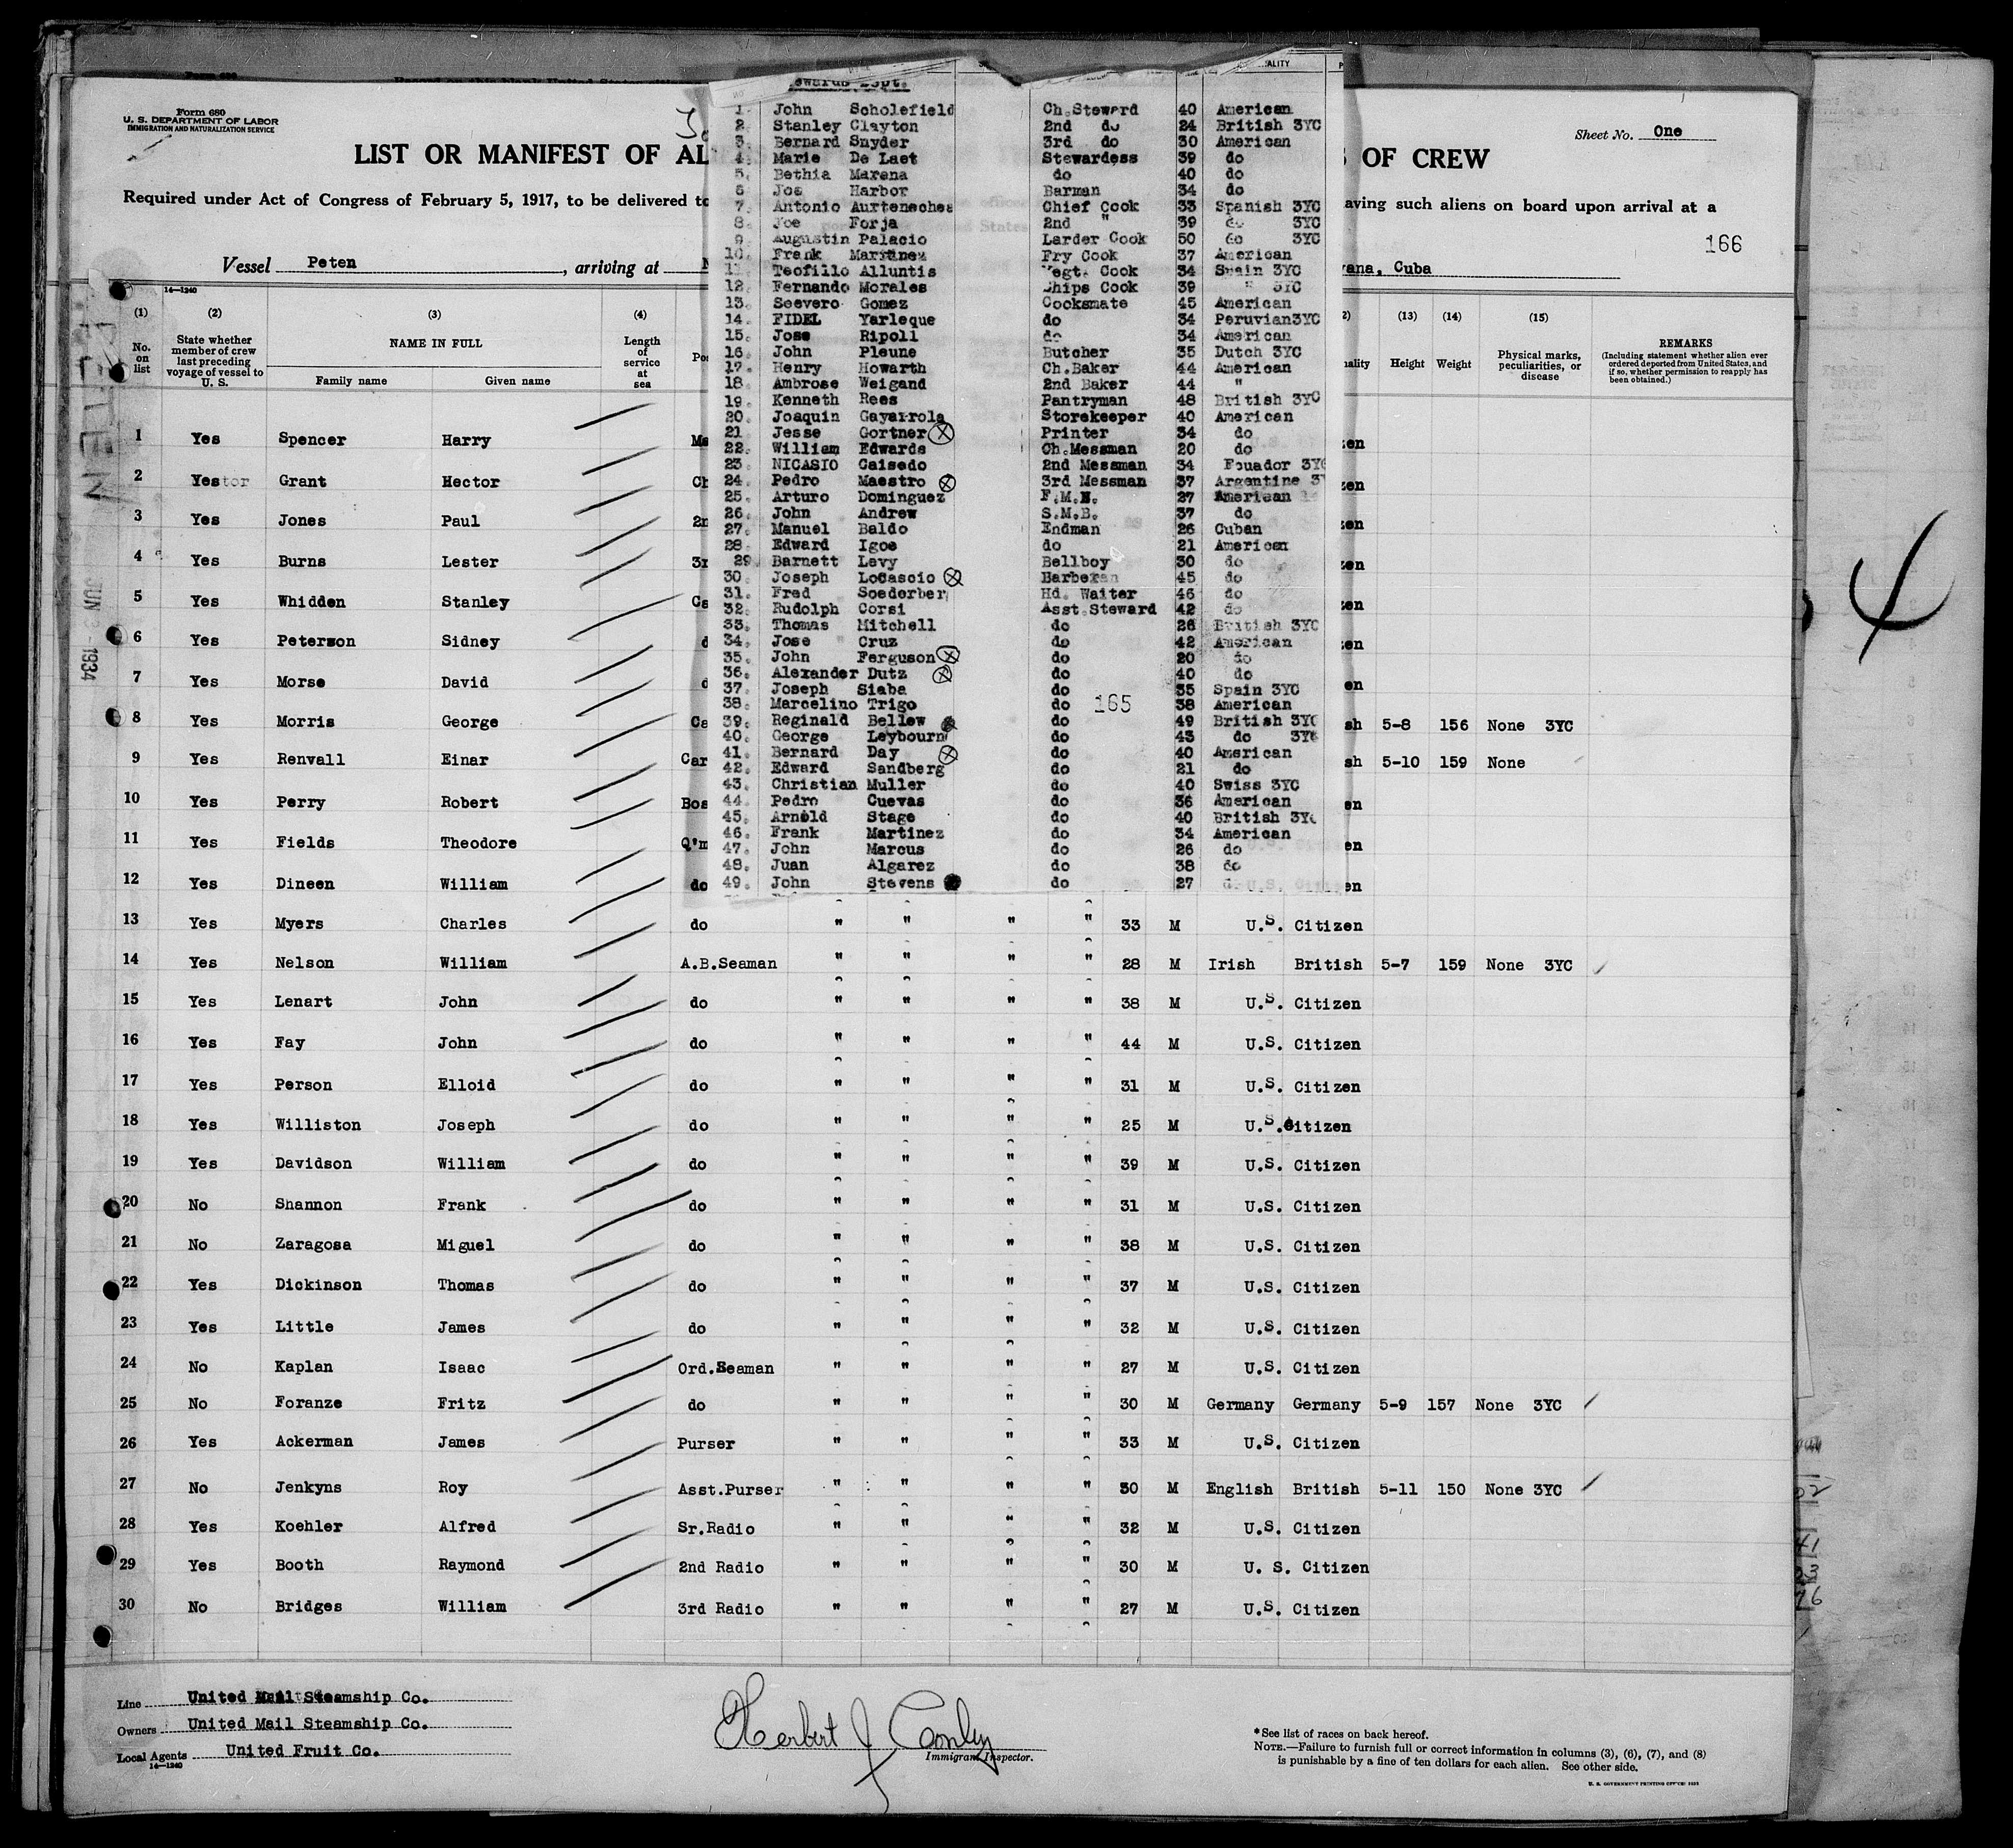 Form 680
U. S. DEPARTMENT OF LABOR
IMMIGRATION AND NATURALIZATION SERVICE
Sheet No. One
LIST OR MANIFEST OF AL
OF CREW
Required under Act of Congress of February 5, 1917, to be delivered to
aving such aliens on board upon arrival at a
166
Vessel Peten, arriving at
ana, Cuba
ALITY
ewards Dept.
1. John Scholefield Ch.Steward 40 American
2. Stanley Clayton 2nd do 24 British 3YC
3. Bernard Snyder 3rd do 30 American
4. Marie De Laet Stewardess 39 do
5. Bethia Marena do 40 do
6 Joe Harbor Barman 34 do
7. Antonio Aurtenechea Chief Cook 33 Spanish 3YC
8. Joe Forja 2nd " 39 do 3YC
9. Augustin Palacio Larder Cook 50 do 3YC
10. Frank Martinez Fry Cook 37 American
11. Teofillo Alluntis Vegt. Cook 34 Spain 3YC
12. Fernando Morales Ships Cook 39 " 3YC
13. Seevero Gomez Cooksmate 45 American
14. FIDEL Yarleque do 34 Peruvian3YC
15. Jose Ripoll do 34 American
16. John Pleune Butcher 35 Dutch 3YC
17. Henry Howarth Ch.Baker 44 American
18. Ambrose Weigand 2nd Baker 44 "
19. Kenneth Rees Pantryman 48 British 3YC
20. Joaquin Gayarrola Storekeeper 40 American
21 Jesse Gortner Printer 34 do
22. William Edwards Ch.Messman 20 do
23. NICASIO Caisedo 2nd Messman 34 Ecuador 3YC
24. Pedro Maestro 3rd Messman 37 Argentine 3Y
25. Arturo Dominguez F.M.N. 27 American
26. John Andrew S.M.B. 37 do
27. Manuel Baldo Endman 26 Cuban
28. Edward Igoe do 21 American
29. Barnett Levy Bellboy 30 do
30. Joseph LoCascio Barber 45 do
31. Fred Soederber Hd. Waiter 46 do
32. Rudolph Corsi Asst.Steward 42 do
33. Thomas Mitchell do 26 British 3YC
34. Jose Cruz do 42 American
35. John Ferguson do 20 do
36. Alexander Dutz do 40 do
37. Joseph Siaba do 35 Spain 3YC
38. Marcelino Trigo do 165 38 American
39. Reginald Bellew do 49 British 3YC
40. George Leybourn do 43 do 3YC
41. Bernard Day do 40 American
42. Edward Sandberg do 21 do
43. Christian Muller do 40 Swiss 3YC
44. Pedro Cuevas do 36 American
45. Arnold Stage do 40 British 3YC
46. Frank Martinez do 34 American
47. John Marcus do 26 do
48. Juan Algarez do 38 do
49. John Stevens do 27 do
14—1240
(1) (2) (3) (4) (13) (14) (15)
No. on list
State whether member of crew last preceding voyage of vessel to U. S.
NAME IN FULL
Family name Given name
Length of service at sea
Height Weight
Physical marks, peculiarities, or disease
REMARKS
(Including statement whether alien ever ordered deported from United States, and if so, whether permission to reapply has been obtained.)
PETEN
JUN 1934
1 Yes Spencer Harry Ma en
2 Yes Grant Hector Ch en
3 Yes Jones Paul 2n en
4 Yes Burns Lester 3r en
5 Yes Whidden Stanley Ca en
6 Yes Peterson Sidney d en
7 Yes Morse David d en
8 Yes Morris George Ca sh 5-8 156 None 3YC
9 Yes Renvall Einar Car sh 5-10 159 None
10 Yes Perry Robert Bos en
11 Yes Fields Theodore Q'm en
12 Yes Dineen William do en
13 Yes Myers Charles do " " " " 33 M U.S. Citizen
14 Yes Nelson William A.B.Seaman " " " " 28 M Irish British 5-7 159 None 3YC
15 Yes Lenart John do " " " " 38 M U.S. Citizen
16 Yes Fay John do " " " " 44 M U.S. Citizen
17 Yes Person Elloid do " " " " 31 M U.S. Citizen
18 Yes Williston Joseph do " " " " 25 M U.S.Citizen
19 Yes Davidson William do " " " " 39 M U.S. Citizen
20 No Shannon Frank do " " " " 31 M U.S. Citizen
21 No Zaragosa Miguel do " " " " 38 M U.S. Citizen
22 Yes Dickinson Thomas do " " " " 37 M U.S. Citizen
23 Yes Little James do " " " " 32 M U.S. Citizen
24 No Kaplan Isaac Ord.Seaman " " " " 27 M U.S. Citizen
25 No Foranze Fritz do " " " " 30 M Germany Germany 5-9 157 None 3YC
26 Yes Ackerman James Purser " " " " 33 M U.S. Citizen
27 No Jenkyns Roy Asst.Purser " " " " 30 M English British 5-11 150 None 3YC
28 Yes Koehler Alfred Sr.Radio " " " " 32 M U.S. Citizen
29 Yes Booth Raymond 2nd Radio " " " " 30 M U. S. Citizen
30 No Bridges William 3rd Radio " " " " 27 M U.S. Citizen
Line United Mail Steamship Co.
Owners United Mail Steamship Co.
Local Agents United Fruit Co.
14—1240
Herbert J Conley
Immigrant Inspector.
*See list of races on back hereof.
NOTE.—Failure to furnish full or correct information in columns (3), (6), (7), and (8)
is punishable by a fine of ten dollars for each alien. See other side.
U. S. GOVERNMENT PRINTING OFFICE: 1933